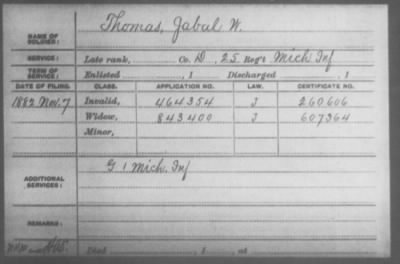 NAME OF SOLDIER: Thomas, Jabul W.
SERVICE: Late rank, Co. D, 25 Reg't Mich Inf
TERM OF SERVICE: Enlisted , 1 Discharged , 1
DATE OF FILING. CLASS. APPLICATION NO. LAW. CERTIFICATE NO.
1882 Nov. 7 Invalid, 464354 J 260606
Widow, 843400 J 607364
Minor,
ADDITIONAL SERVICES: G 1 Mich. Inf
REMARKS:
Died , 1 , at